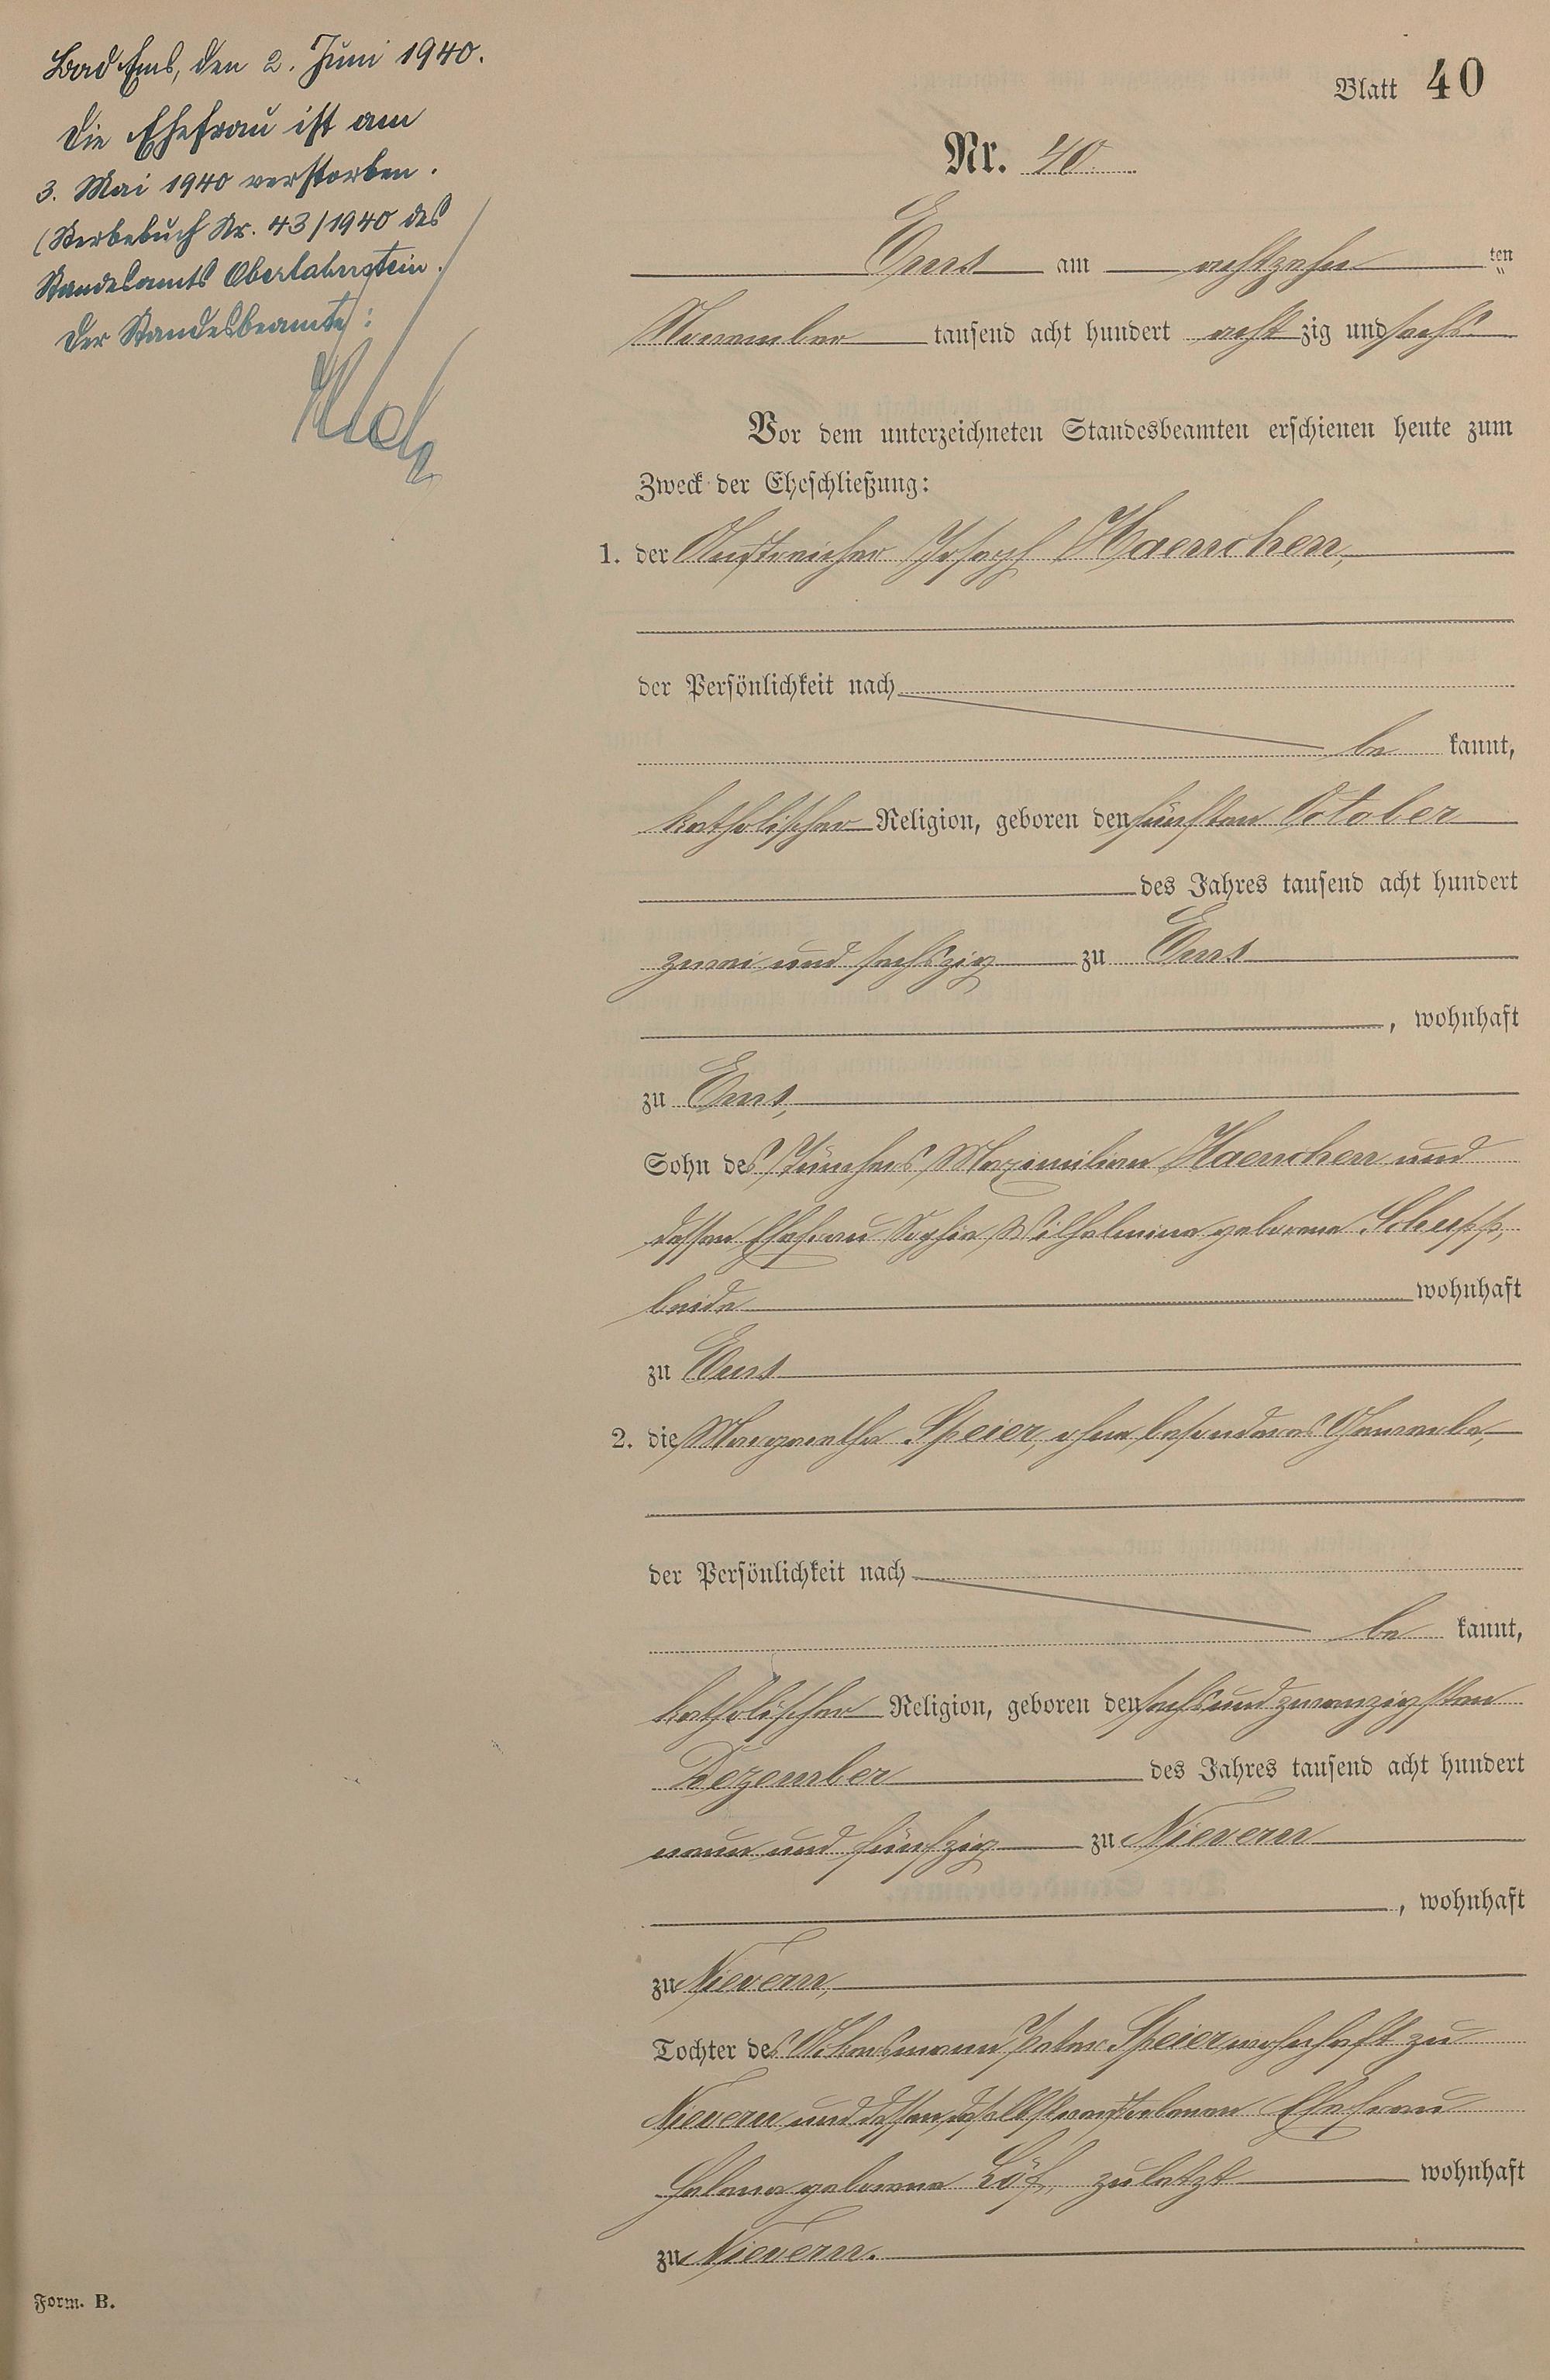 Bad Ems, den 2. Juni 1940.
Die Ehefrau ist am
3. Mai 1940 verstorben.
(Sterbebuch Nr. 43/1940 des
Standesamts Oberlahnstein.
Der Standesbeamte:
Blatt 40
Nr. 40
Ems am achtzehn ten
November tausend acht hundert acht zig und sechs
Vor dem unterzeichneten Standesbeamten erschienen heute zum
Zweck der Eheschließung:
1. der Anstreicher Joseph Haenchen,
der Persönlichkeit nach
be kannt,
katholischer Religion, geboren den fünften October
des Jahres tausend acht hundert
zwei und sechszig zu Ems
, wohnhaft
zu Ems,
Sohn des Tünchers Maximilian Haenchen und
dessen Ehefrau Sophie Wilhelmine geborene
beide wohnhaft
zu Ems
2. die Margaretha Speier, ohne besonderes Gewerbe,
der Persönlichkeit nach
be kannt,
katholischer Religion, geboren den sechsundzwanzigsten
Dezember des Jahres tausend acht hundert
neun und fünfzig zu Nievern
, wohnhaft
zu Nievern,
Tochter des Ackersmann Peter Speier wohnhaft zu
Nievern und dessen daselbst verstorbenen Ehefrau
Helena geborene Löf, zuletzt wohnhaft
zu Nievern.
Form. B.